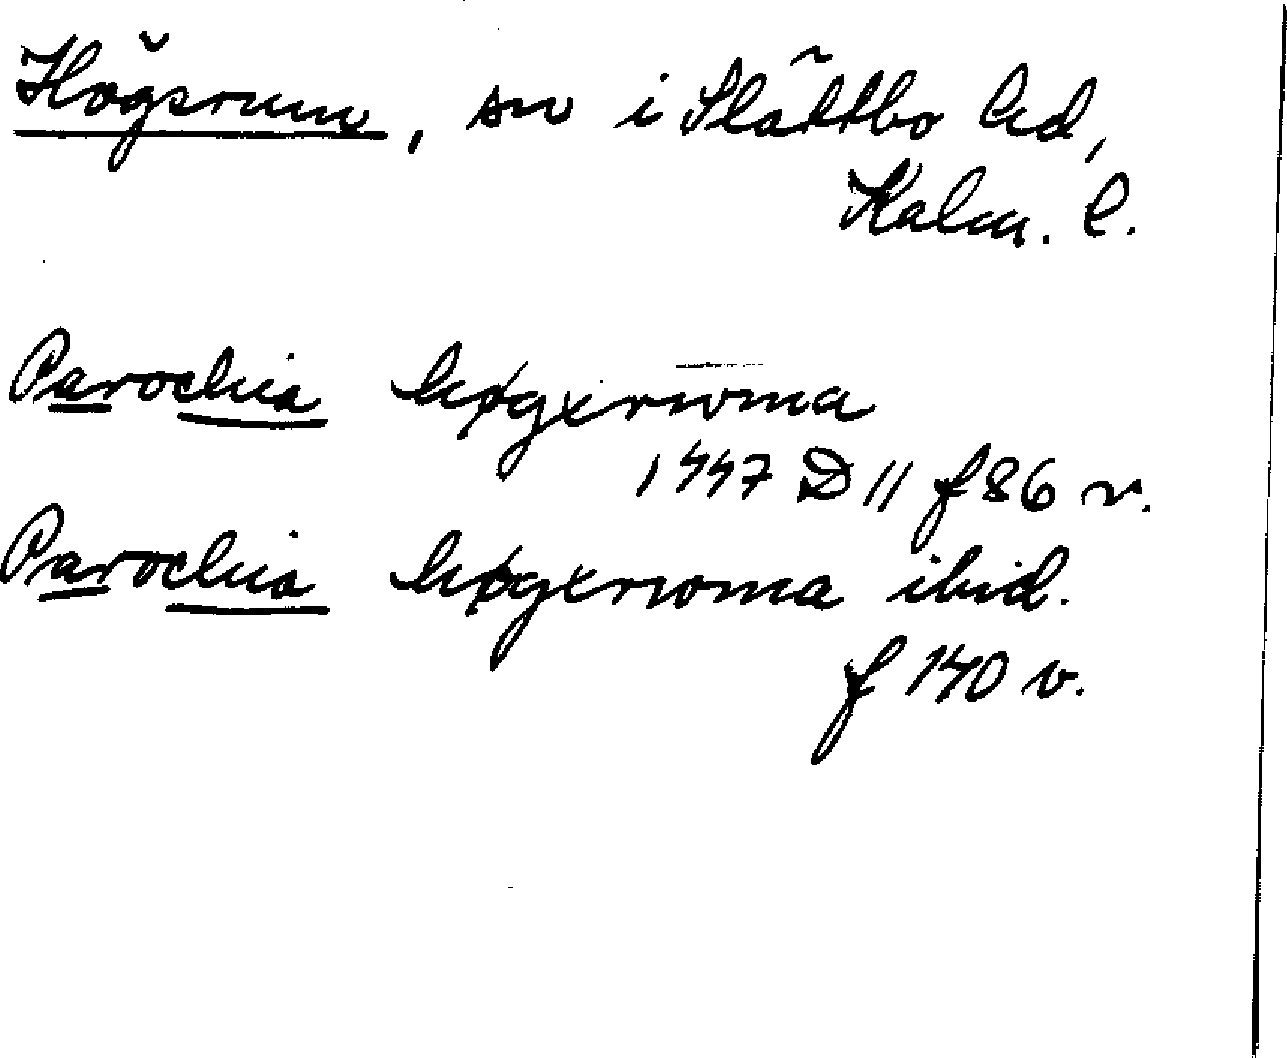 Högsrum, sn i Slättbo hd,
Kalm. l.
Parochia høgxrwma
1447 D 11 f 86 v.
Parochia høgxrwma ibid.
f 140 v.